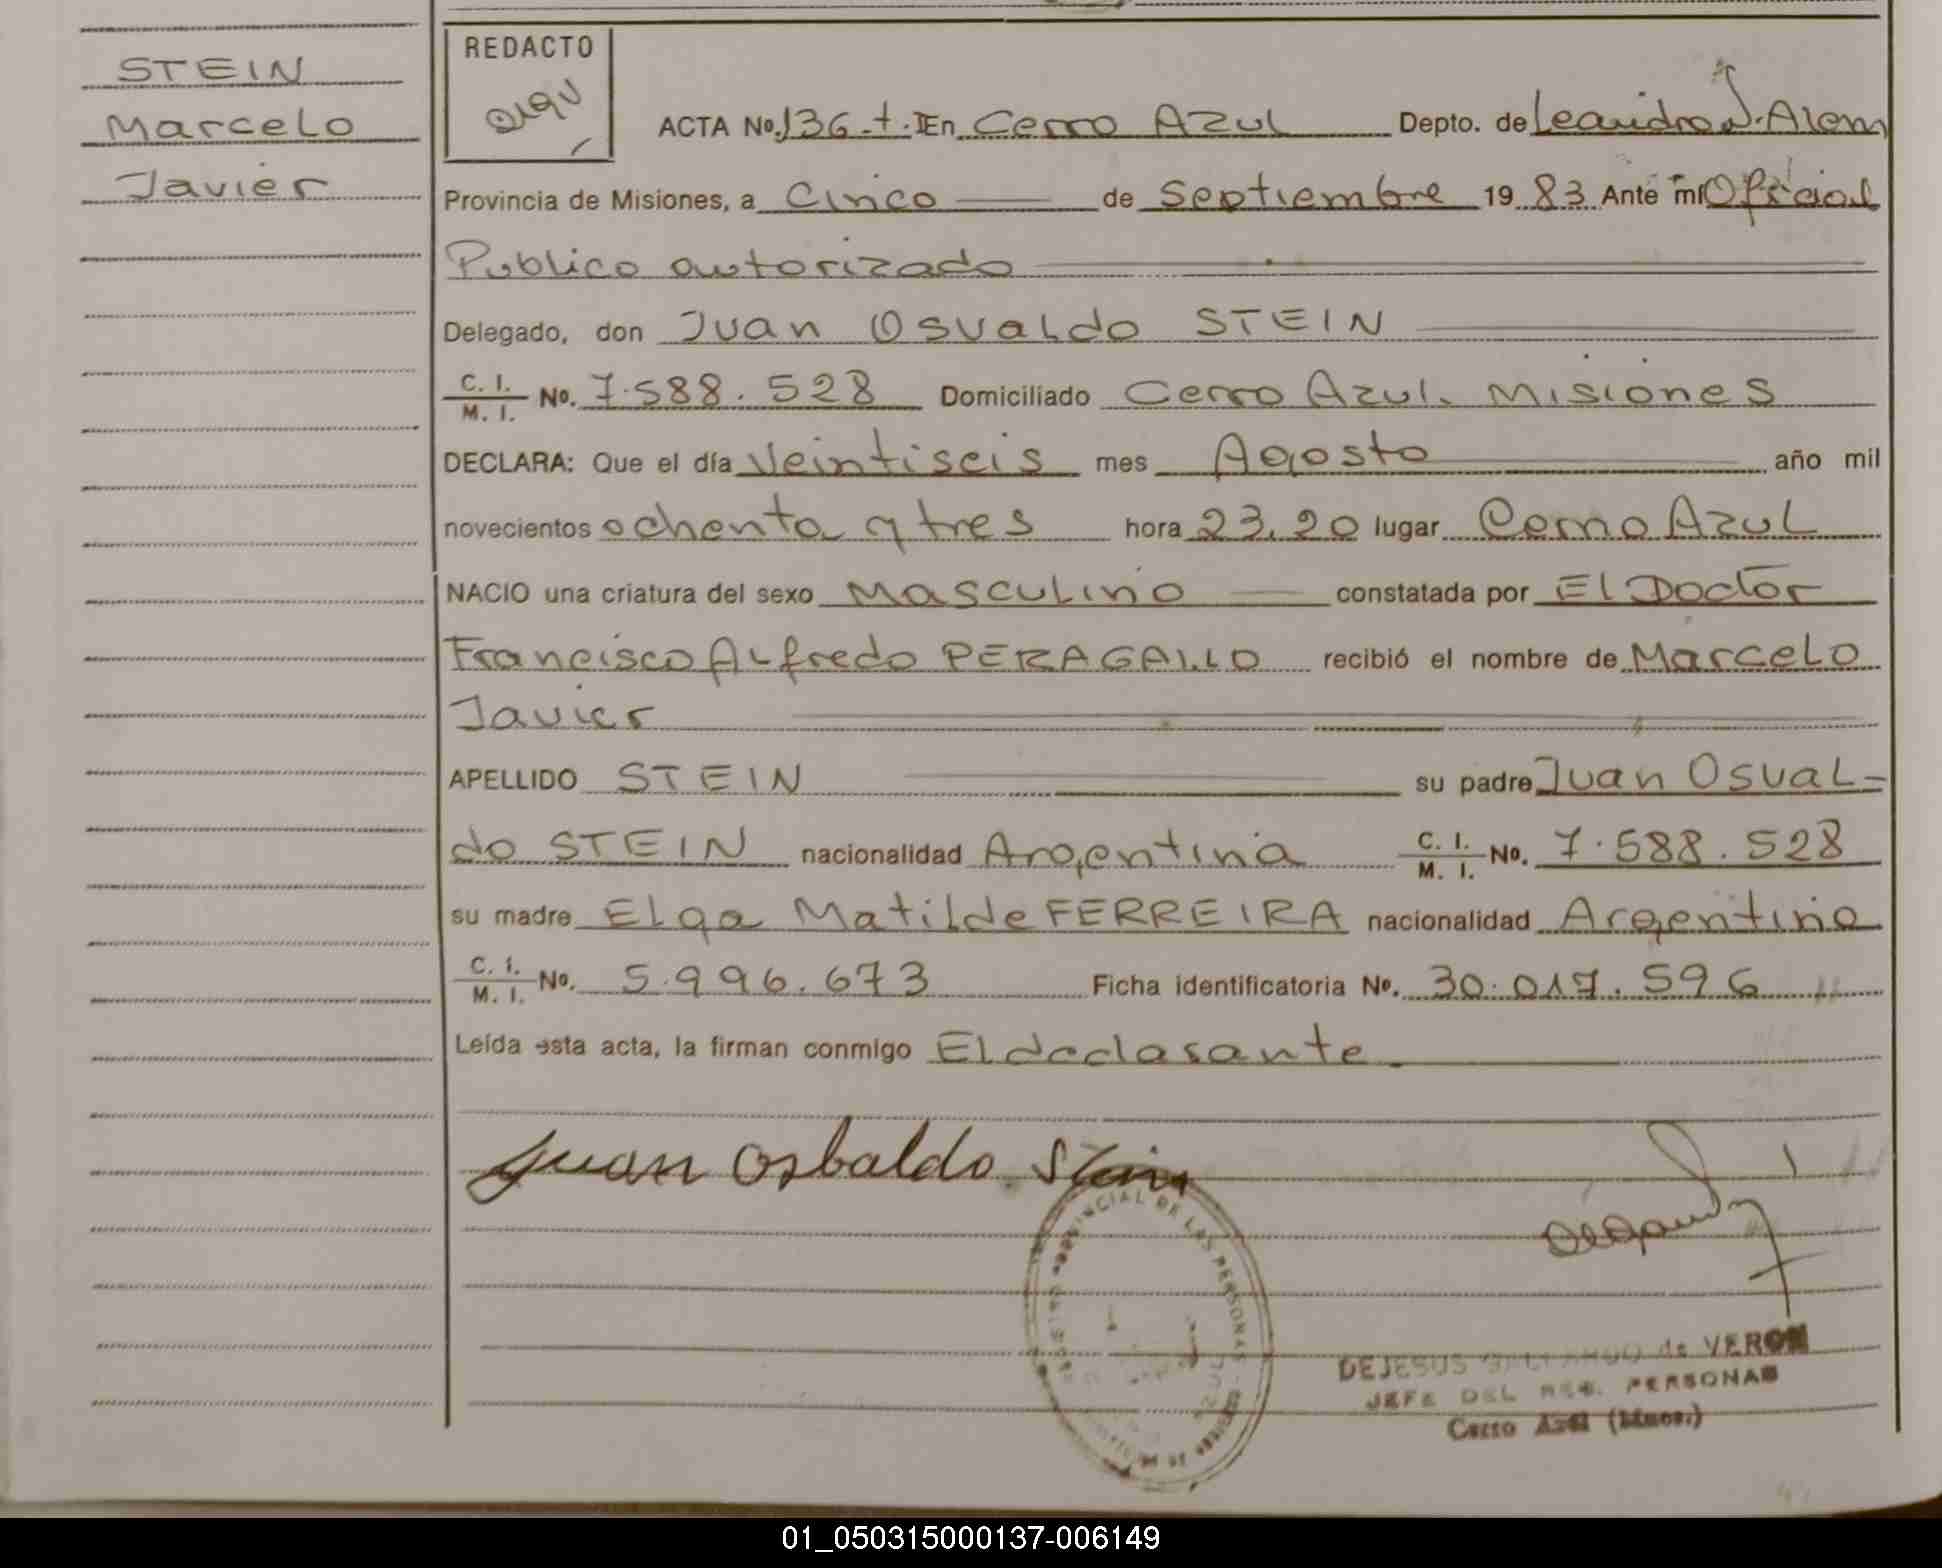 STEIN
Marcelo
Javier
REDACTO
ACTA No. 136.t.I En Cerro Azul Depto. de Leandro N. Alem
Provincia de Misiones, a Cinco de Septiembre 1983 Ante mi Oficial
Publico autorizado
Delegado, don Juan Osvaldo STEIN
C. I. / M. I. No. 7.588.528 Domiciliado Cerro Azul. Misiones
DECLARA: Que el día Veintiseis mes Agosto año mil
novecientos ochenta y tres hora 23,20 lugar Cerro Azul
NACIO una criatura del sexo Masculino constatada por El Doctor
Francisco Alfredo PERAGALLO recibió el nombre de Marcelo
Javier
APELLIDO STEIN su padre Juan Osval=
do STEIN nacionalidad Argentina C. I. / M. I. No. 7.588.528
su madre Elga Matilde FERREIRA nacionalidad Argentina
C. I. / M. I. No. 5.996.673 Ficha identificatoria No. 30.017.596
Leída esta acta, la firman conmigo El declarante
Juan Osbaldo Stein
PROVINCIAL DE LAS PERSONAS
DEJESUS de VERON
JEFE DEL REG. PERSONAS
Cerro Azul (Mnes.)
01_050315000137-006149